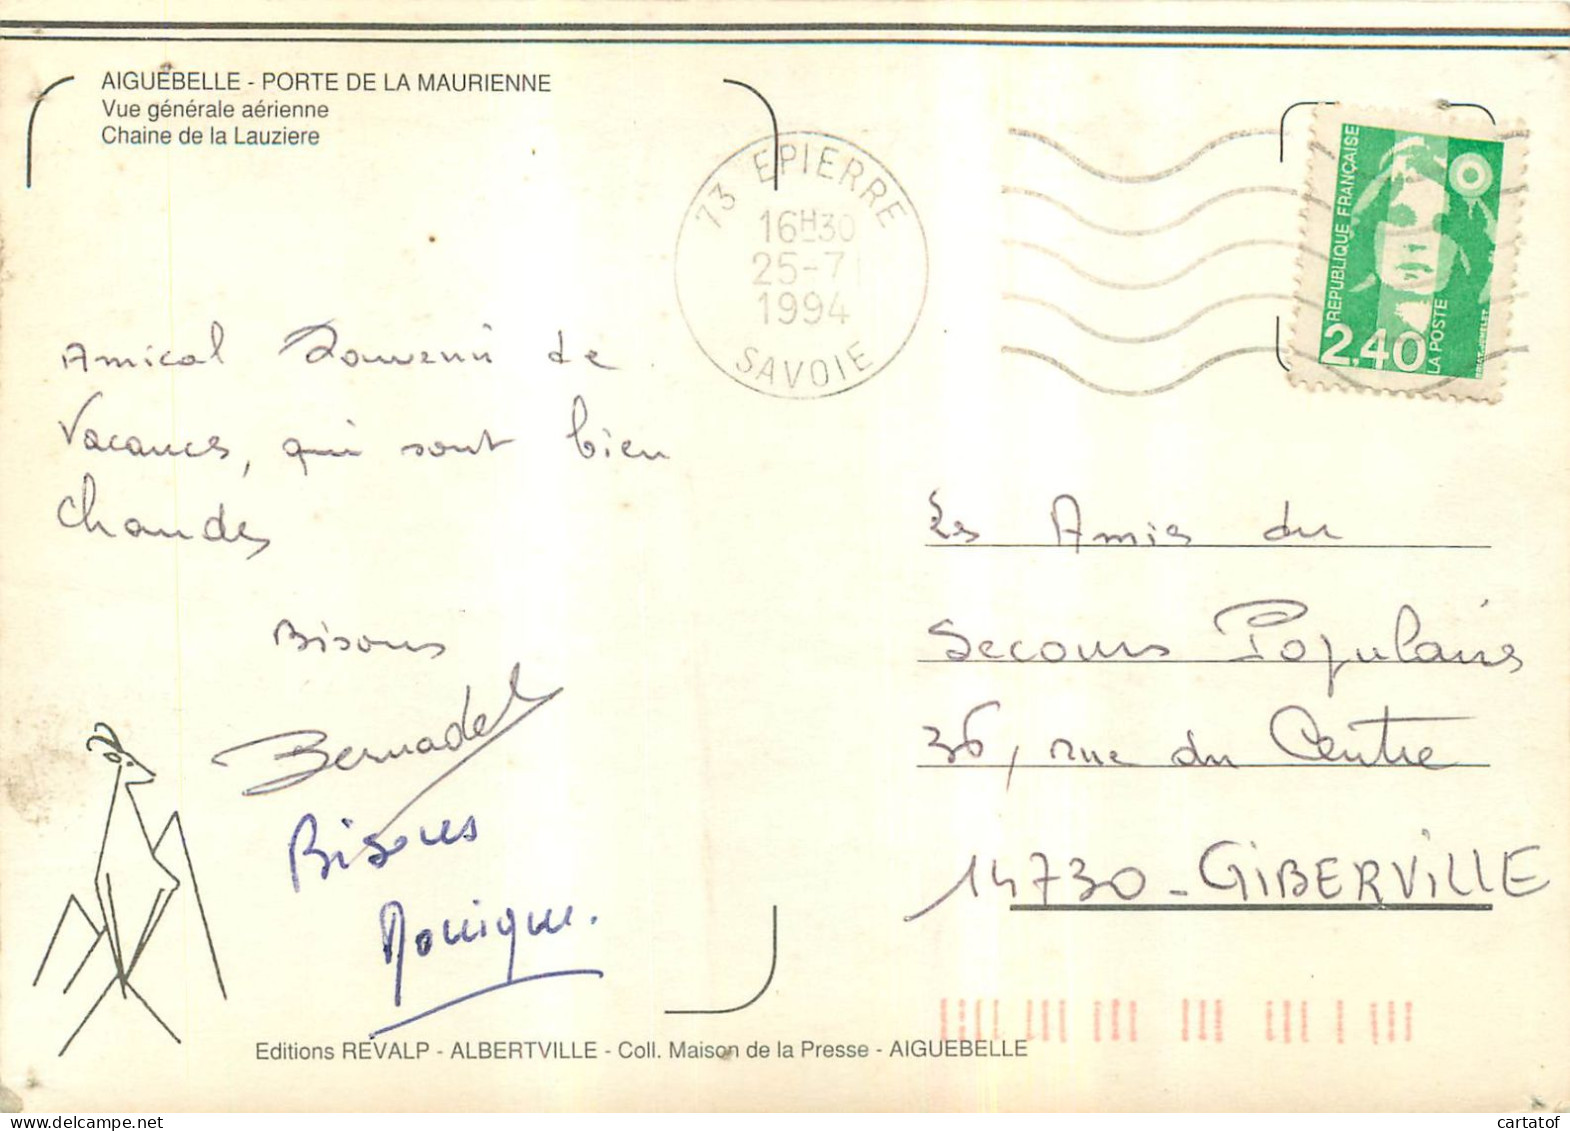 AIGUEBELLE - PORTE DE LA MAURIENNE
Vue générale aérienne
Chaine de la Lauziere
73 EPIERRE
16H30
25-7
1994
SAVOIE
REPUBLIQUE FRANÇAISE
2,40
LA POSTE
BRIAT-JUMELET
Amical Souvenir de
Vacances, qui sont bien
chaudes
Bisous
Bernadet
Bisous
Monique.
Les Amis du
Secours Populaire
36, rue du Centre
14730 - GIBERVILLE
Editions REVALP - ALBERTVILLE - Coll. Maison de la Presse - AIGUEBELLE
cartatof